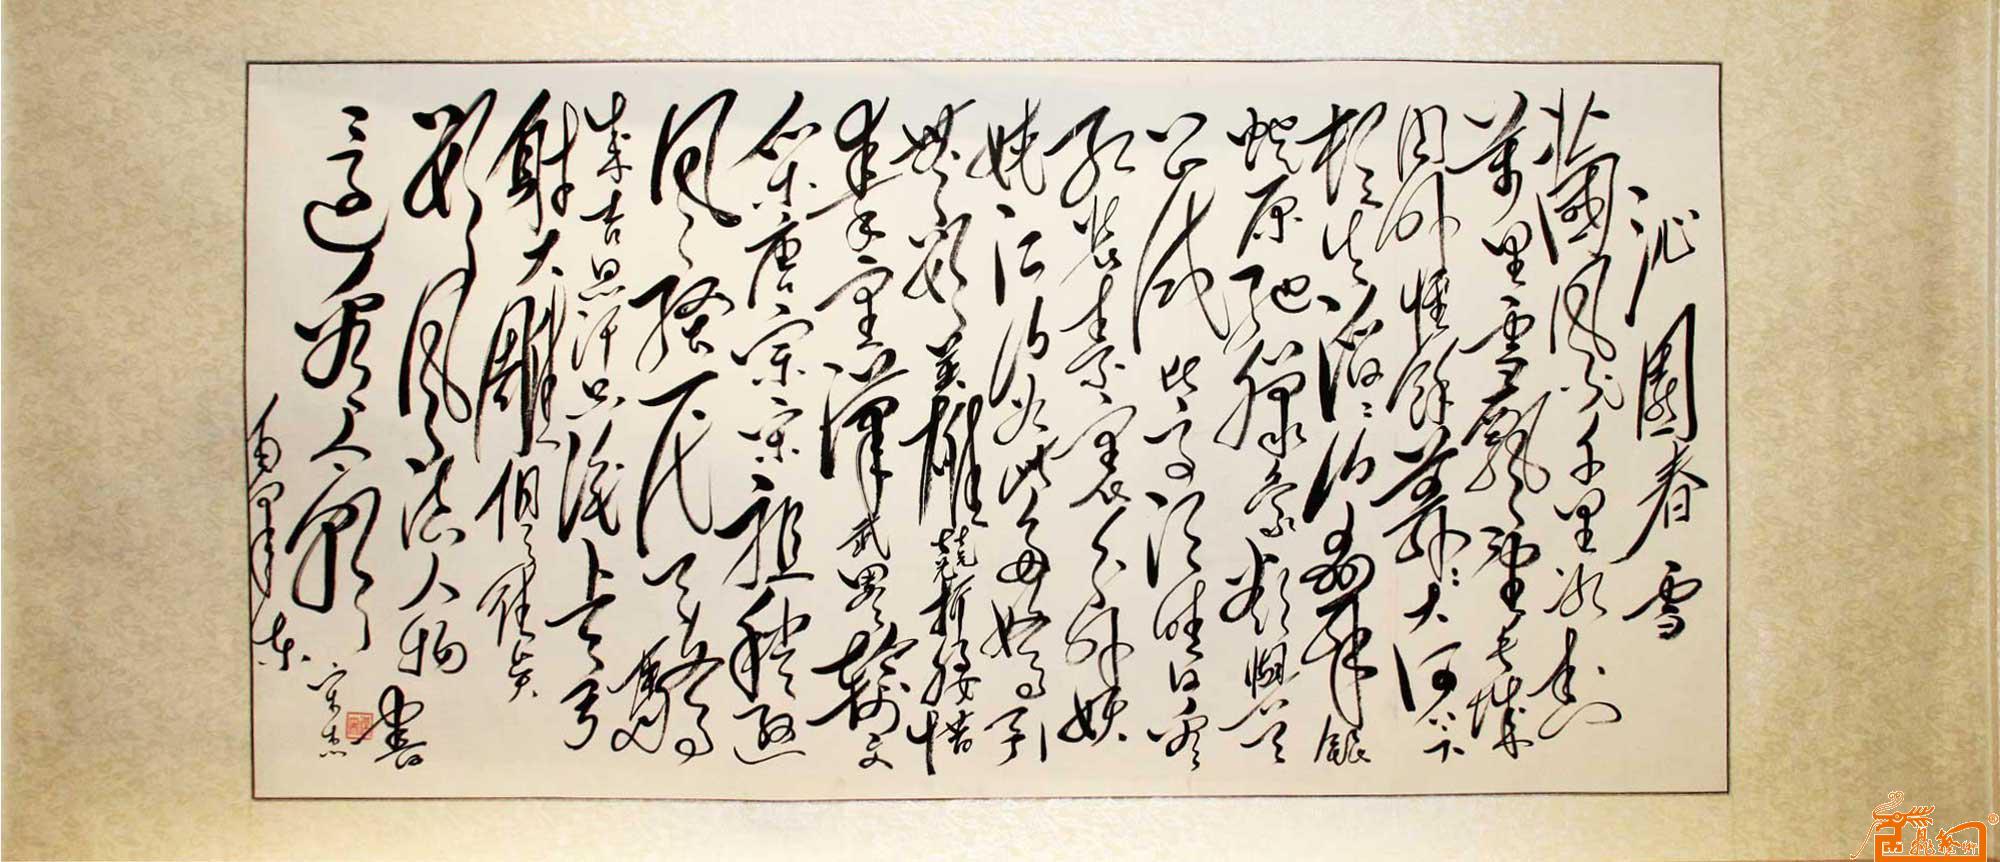 沁園春雪
北國風光千里冰封
萬里雪飄望長城
內外惟餘莽莽大河上下
頓失滔滔山舞銀
蛇原馳蠟象欲與天
公試比高須晴日看
紅裝素裹分外妖
嬈江山如此多嬌引
無數英雄競折腰惜
秦皇漢武略輸文
采唐宗宋祖稍遜
風騷一代天驕
成吉思汗只識彎弓
射大雕俱往矣
數風流人物
還看今朝
書